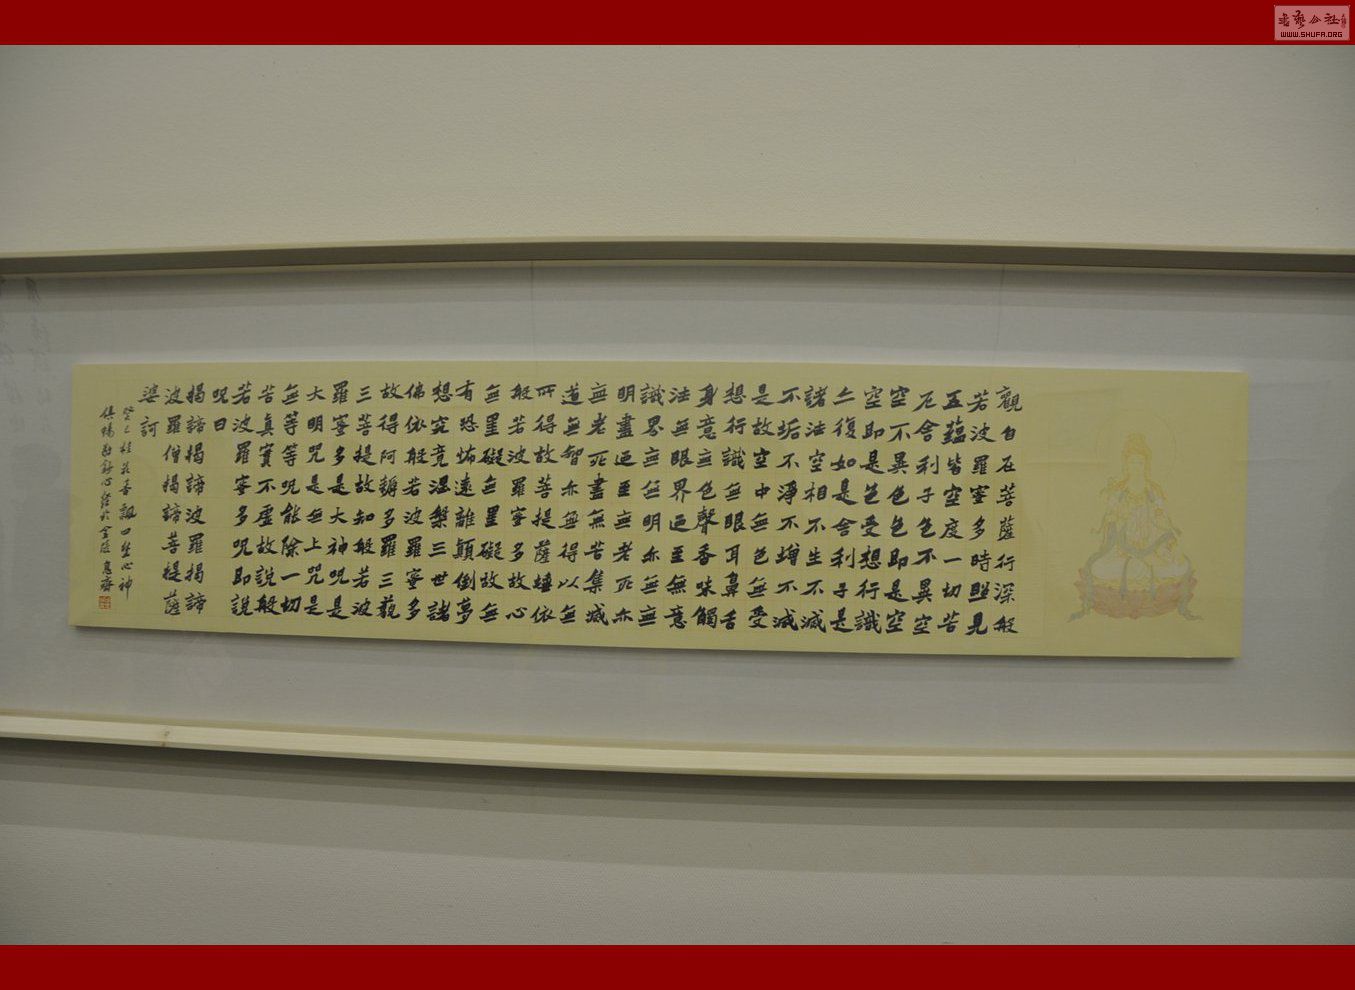 觀自在菩薩行深般
若波羅蜜多時照見
五蘊皆空度一切苦
厄舍利子色不異空
空不異色色即是空
空即是色受想行識
亦復如是舍利子是
諸法空相不生不滅
不垢不淨不增不減
是故空中無色無受
想行識無眼耳鼻舌
身意無色聲香味觸
法無眼界迺至無意
識界無無明亦無無
明盡迺至無老死亦
無老死盡無苦集滅
道無智亦無得以無
所得故菩提薩埵依
般若波羅蜜多故心
無罣礙無罣礙故無
有恐怖遠離顛倒夢
想究竟涅槃三世諸
佛依般若波羅蜜多
故得阿耨多羅三藐
三菩提故知般若波
羅蜜多是大神咒是
大明咒是無上咒是
無等等咒能除一切
苦真實不虛故說般
若波羅蜜多咒即說
咒曰
揭諦揭諦波羅揭諦
波羅僧揭諦菩提薩
婆訶
癸巳桂花香飄四坐心神
俱暢敬錄心經於金陵息齋
書法公社
WWW.SHUFA.ORG